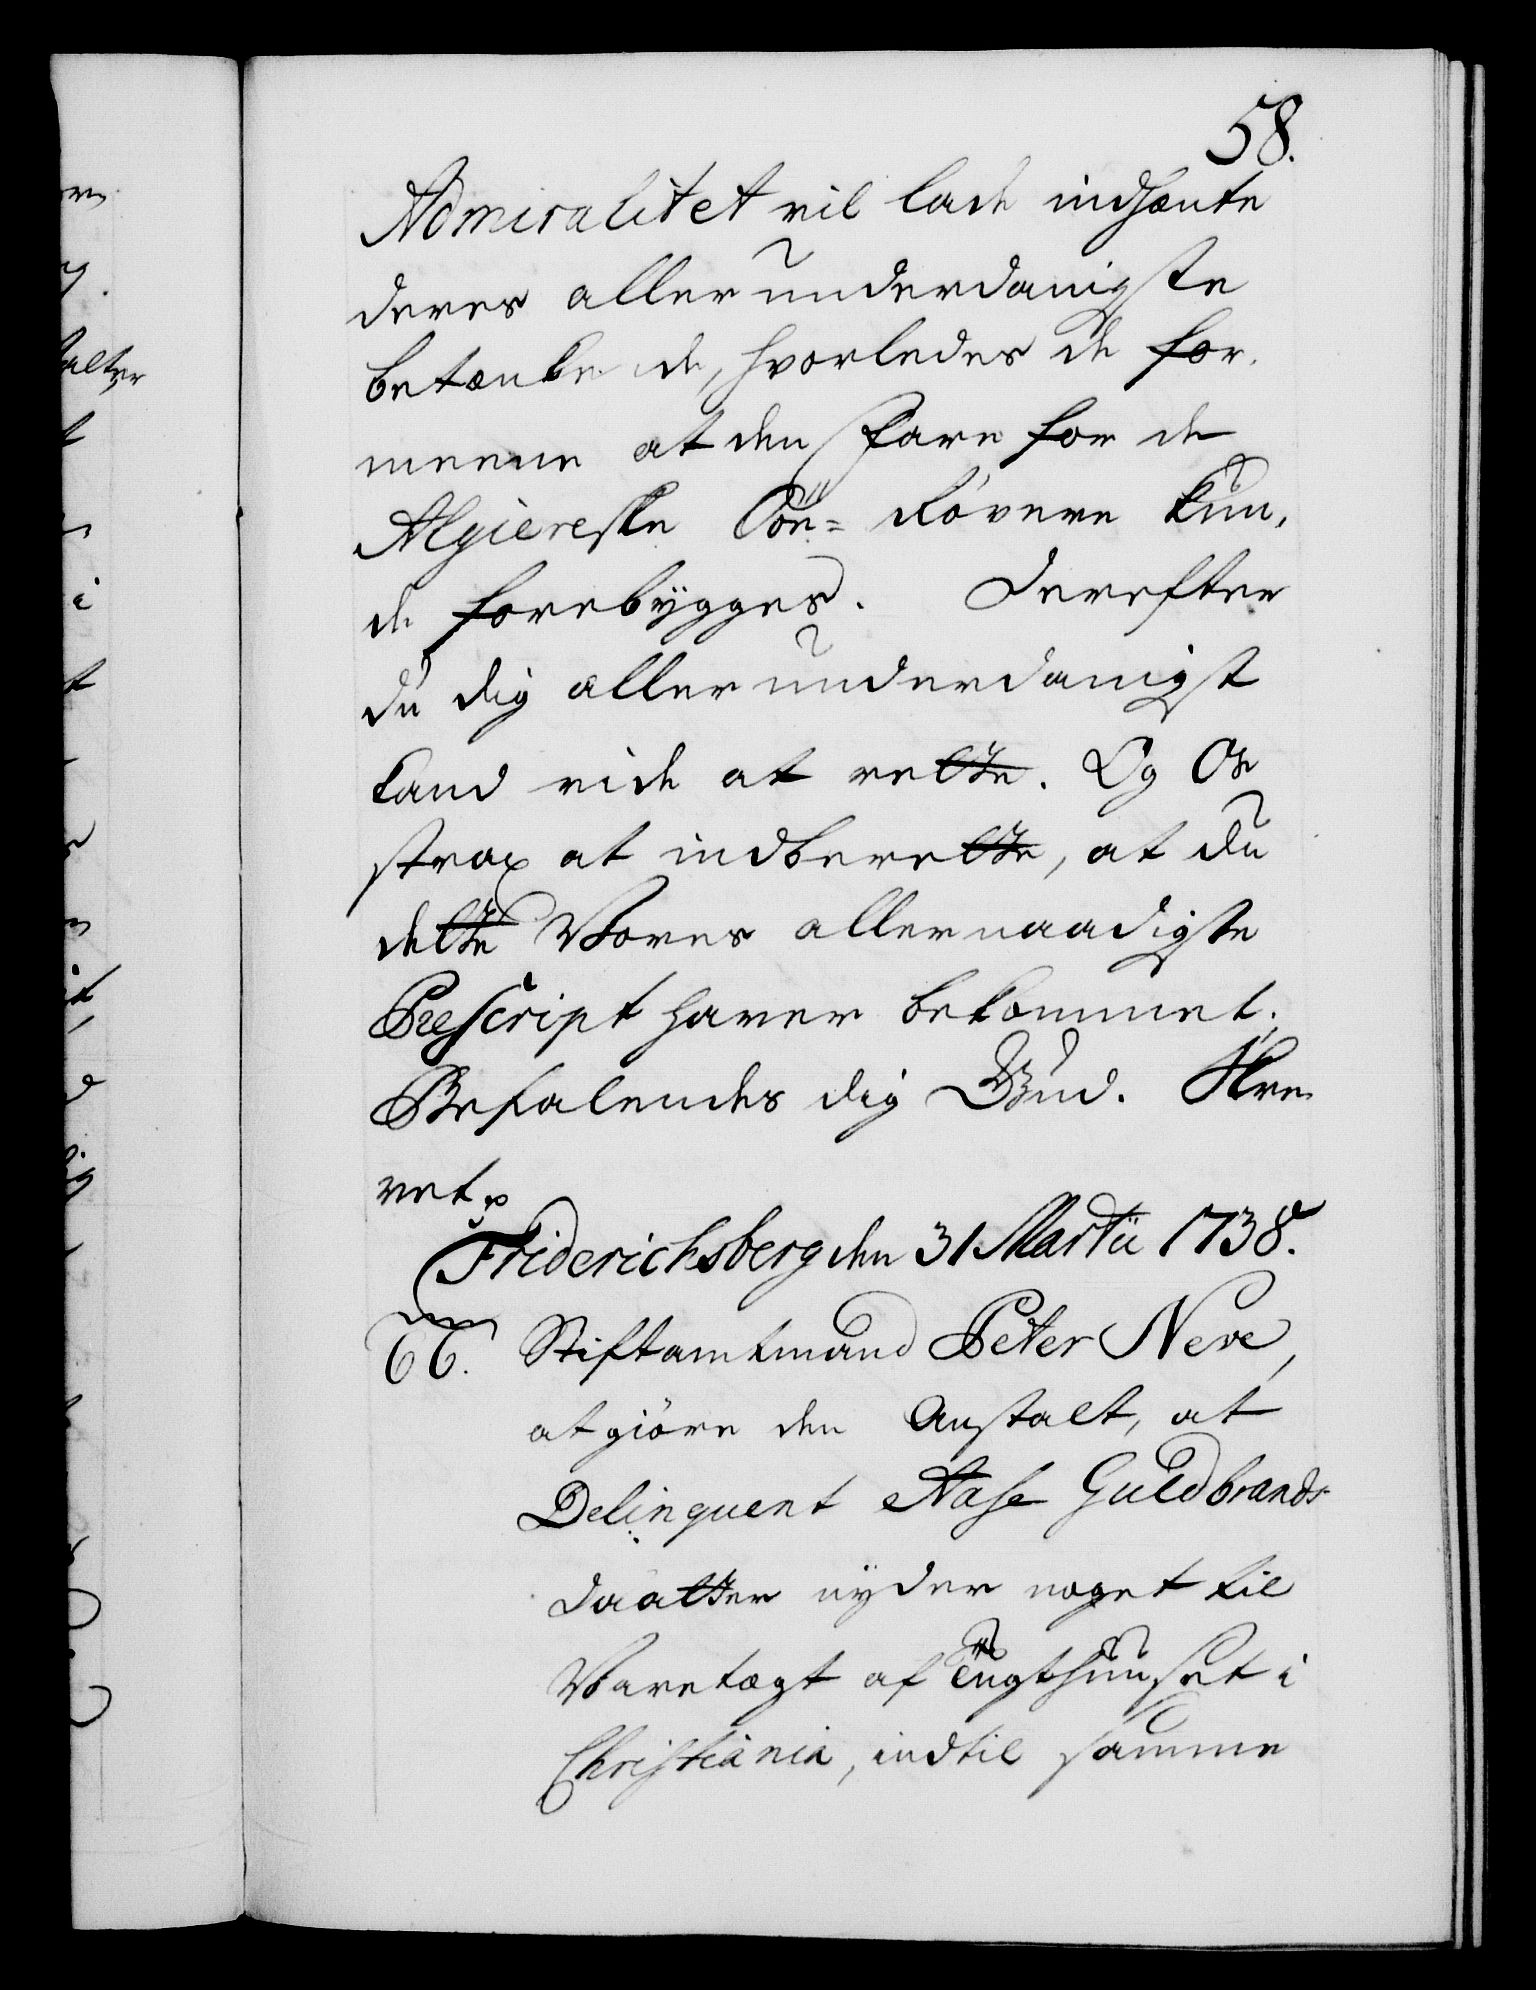 58.
Admiralitet vil lade indhænte
deres allerunderdanigste
betænkende, hvorledes de for-
meene at den Fare for de
Algiereske Söe=Røvere kun-
de forebygges. Derefter
du dig allerunderdanigst
kand vide at rette. Og
strax at indberette, at du
dette Vores allernaadigste
Rescript haver bekommet.
Befalendes dig Gud. Skre-
vet p
Friderichsberg den 31 Martii 1738.
Stiftamtmand Peter Neve,
at giöre den Anstalt, at
Delinquent Aase Guldbrands-
daatter nyder noget til
Varetægt af Tugthuuset i
Christiania, indtil samme